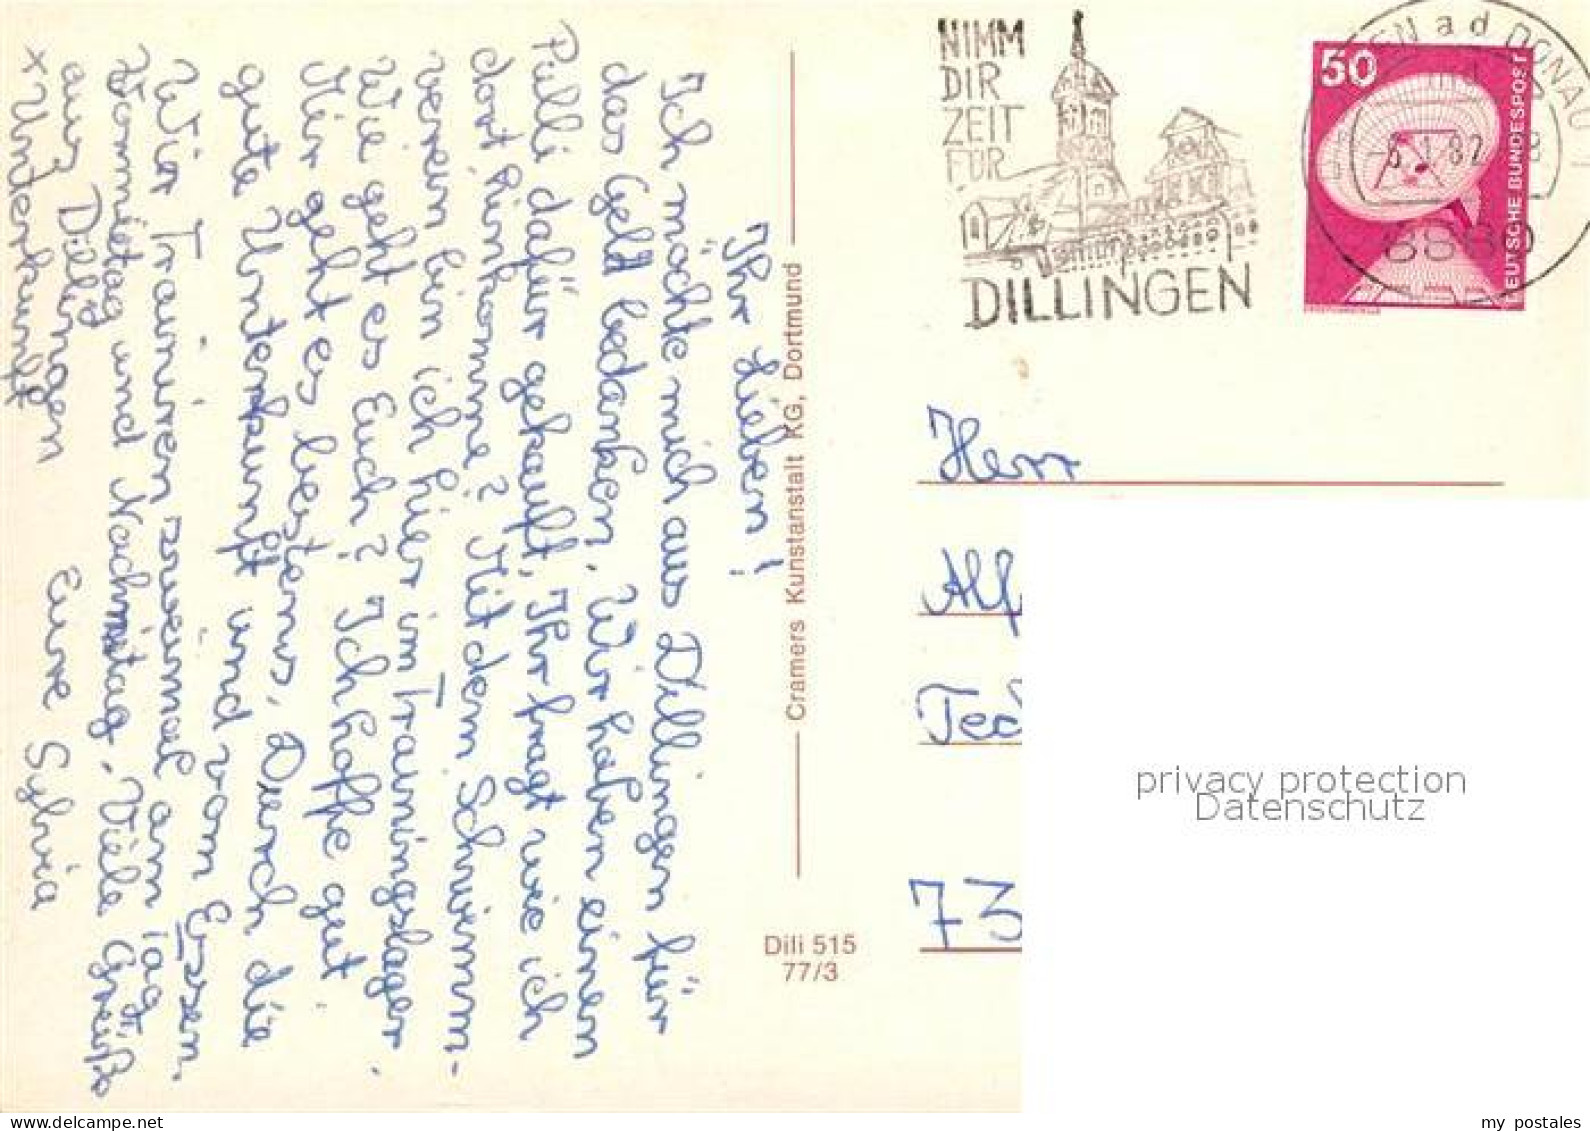 Ihr Lieben!
Ich möchte mich aus Dillingen für
das Geld bedanken. Wir haben einen
Pulli dafür gekauft. Ihr fragt wie ich
dort hinkomme? Mit dem Schwimm-
verein bin ich hier im Trainingslager.
Wie geht es Euch? Ich hoffe gut.
Mir geht es bestens. Durch die
gute Unterkunft und vom Essen.
Wir trainieren zweimal am Tag,
Vormittag und Nachmittag. Viele Grüße
aus Dillingen Eure Sylvia
x Unterkunft
Cramers Kunstanstalt KG, Dortmund
Dili 515
77/3
NIMM
DIR
ZEIT
FÜR
DILLINGEN
50
DEUTSCHE BUNDESPOST
EN a d DONAU 1
1.82
8880
Herr
Alf
Tec
73
privacy protection
Datenschutz
my_postales